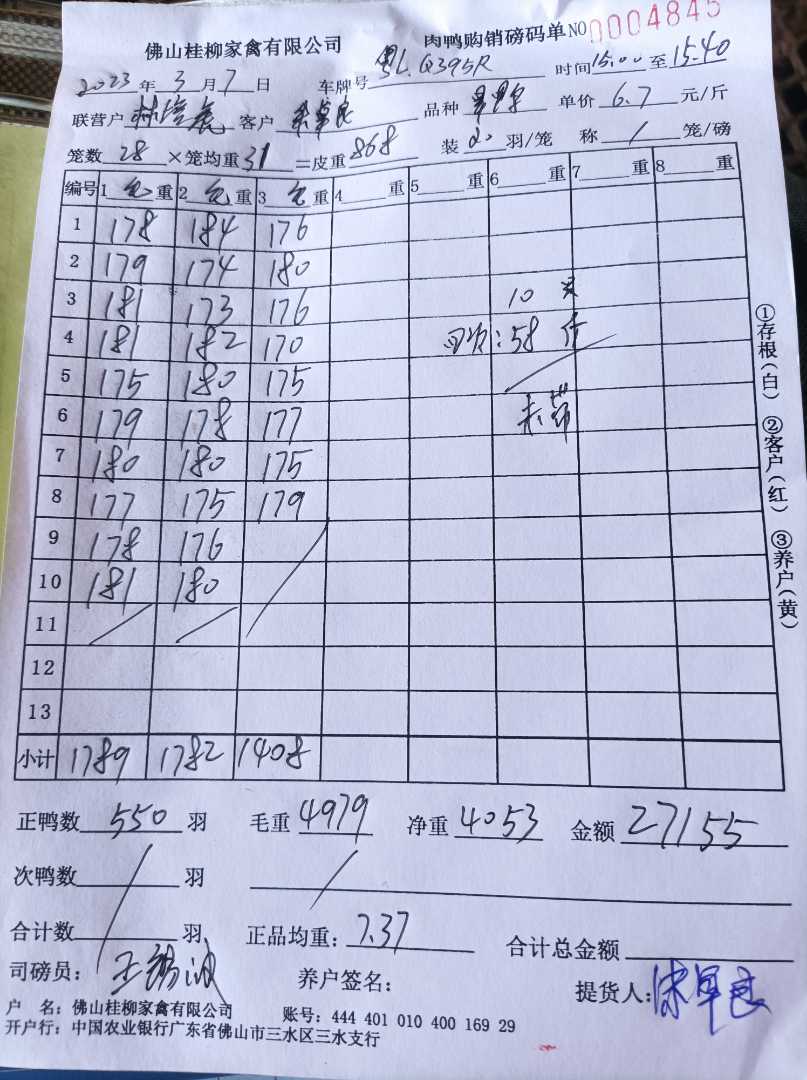 佛山桂柳家禽有限公司 肉鸭购销磅码单 NO 0004845
2023年3月7日 车牌号 粤L.Q395R 时间15:00至15:40
联营户 客户 品种 单价 6.7 元/斤
笼数 28 ×笼均重 31 =皮重 868 装 20 羽/笼 称 / 笼/磅
编号 1 毛 重 2 毛 重 3 毛 重 4 重 5 重 6 重 7 重 8 重
1 178 184 176
2 179 174 180
3 181 173 176 10只
4 181 182 170 :58斤
5 175 180 175
6 179 178 177
7 180 180 175
8 177 175 179
9 178 176
10 181 180
11
12
13
小计 1789 1782 1408
正鸭数 550 羽 毛重 4979 净重 4053 金额 27155
次鸭数 羽
合计数 羽 正品均重: 7.37 合计总金额
司磅员: 养户签名: 提货人:
户 名: 佛山桂柳家禽有限公司 账号: 444 401 010 400 169 29
开户行: 中国农业银行广东省佛山市三水区三水支行
①存根(白) ②客户(红) ③养户(黄)